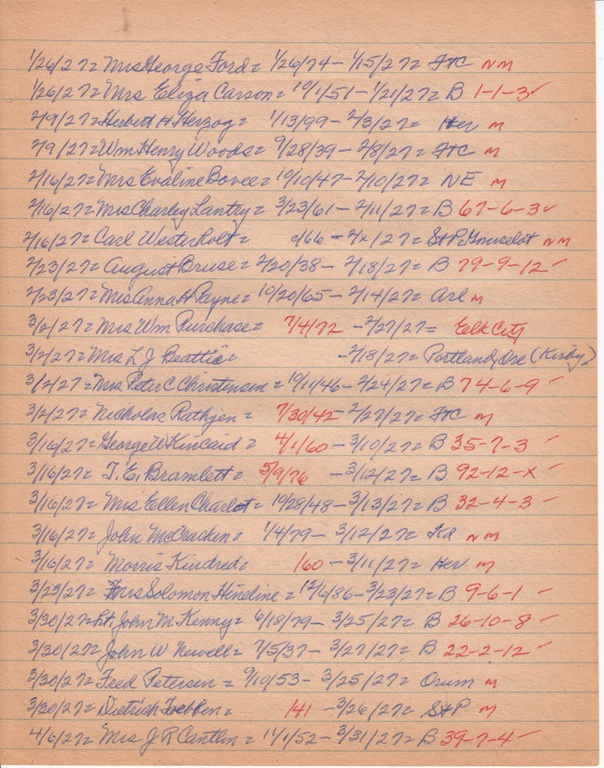 1/26/27= Mrs George Ford= 1/26/74 - 1/15/27= FtC NM
1/26/27= Mrs Eliza Carson= 10/1/51 - 1/21/27= B 1-1-3✓
2/9/27= Herbert H Herzog= 1/13/99 - 2/3/27= Her M
2/9/27= Wm Henry Woods= 9/28/39 - 2/8/27= FtC M
2/16/27= Mrs Evaline Bovee= 10/10/47 - 2/10/27= NE M
2/16/27= Mrs Charley Lantry= 3/23/61 - 2/11/27= B 67-6-3✓
2/16/27= Carl Westerholt= c/66 - 2/x/27= St P. NM
2/23/27= August Bruse= 2/20/38 - 2/18/27= B 79-9-12✓
2/23/27= Mrs Anna H Payne= 10/20/65 - 2/14/27= Arl M
3/2/27= Mrs Wm Purchase= 7/4/72 - 2/27/27= Elk City
3/2/27= Mrs L J Beattie= - 2/18/27= Portland, Ore (Kirby)
3/2/27= Mrs Peter C Christensen= 10/11/46 - 2/24/27= B 74-6-9✓
3/2/27= Nicholas Rathjen= 7/30/42 - 2/27/27= FtC M
3/16/27= George W Kincaid= 4/1/60 - 3/10/27= B 35-7-3✓
3/16/27= T. E. Bramlett= 5/9/76 - 3/12/27= B 92-12-X✓
3/16/27= Mrs Ellen Charlot= 10/28/48 - 3/13/27= B 32-4-3✓
3/16/27= John McCracken= 1/4/79 - 3/12/27= Kd NM
3/16/27= Morris Kindred= 160 - 3/11/27= Her M
3/23/27= Mrs Solomon Hineline= 12/6/86 - 3/23/27= B 9-6-1✓
3/30/27= Lt. John M Kenny= 6/18/79 - 3/25/27= B 26-10-8✓
3/30/27= John W Newell= 7/5/37 - 3/27/27= B 22-2-12✓
3/30/27= Fred Petersen= 9/10/53 - 3/25/27= Orum M
3/30/27= Dietrich= 141 - 3/26/27= St P M
4/6/27= Mrs J R Cantlin= 11/1/52 - 3/31/27= B 39-7-4✓